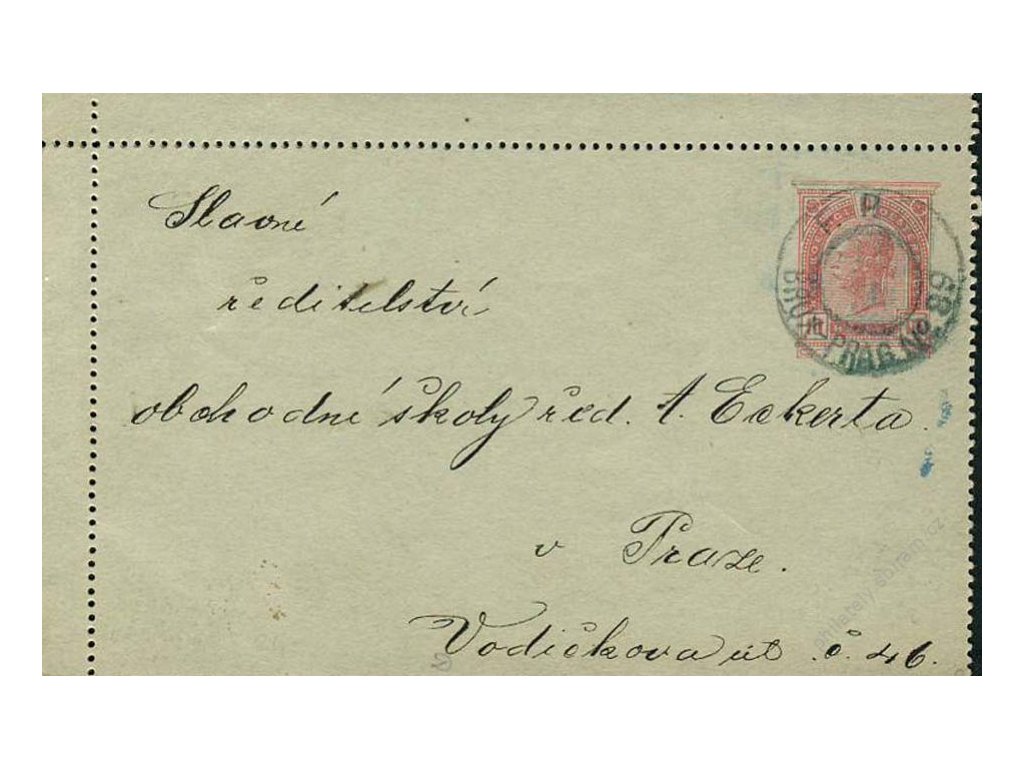 Slavné
ředitelství
obchodné školy řed. A. Eckerta.
v Praze.
Vodičkova ul. č. 46.
PRAG No 68
10
philately.sbiram.cz